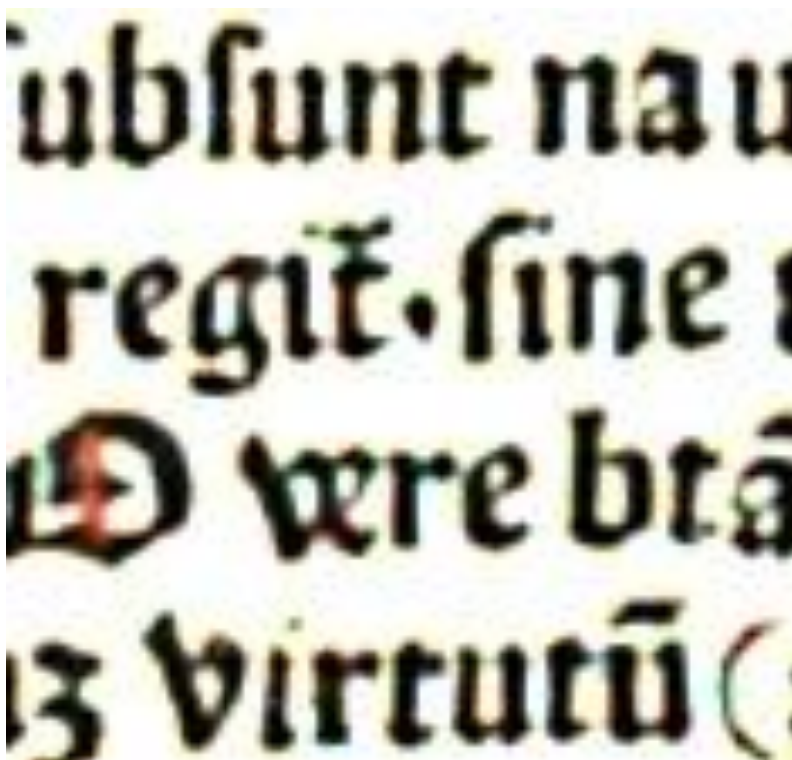 ſubſunt nau
regit̄·ſine
O vere btā
ꝫ virtutū (